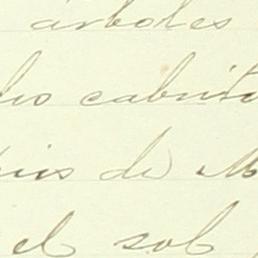 árboles
cabrit
de M
el sol